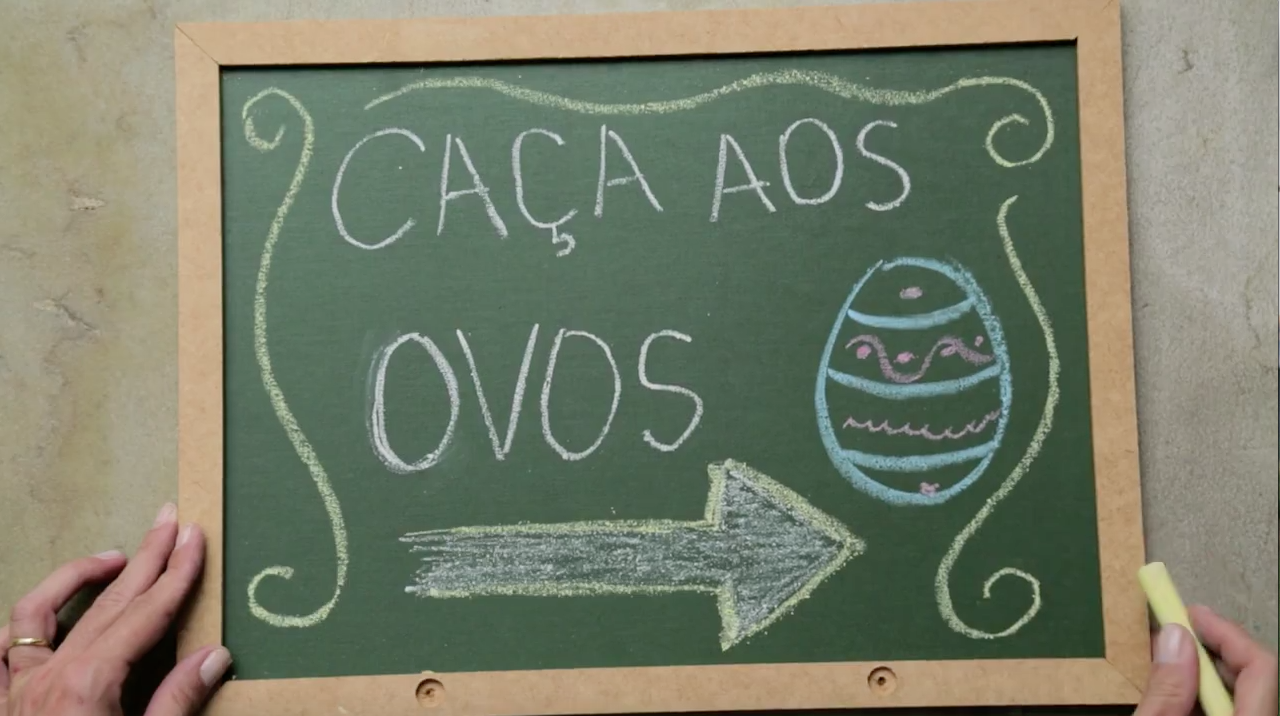 CAÇA AOS
OVOS